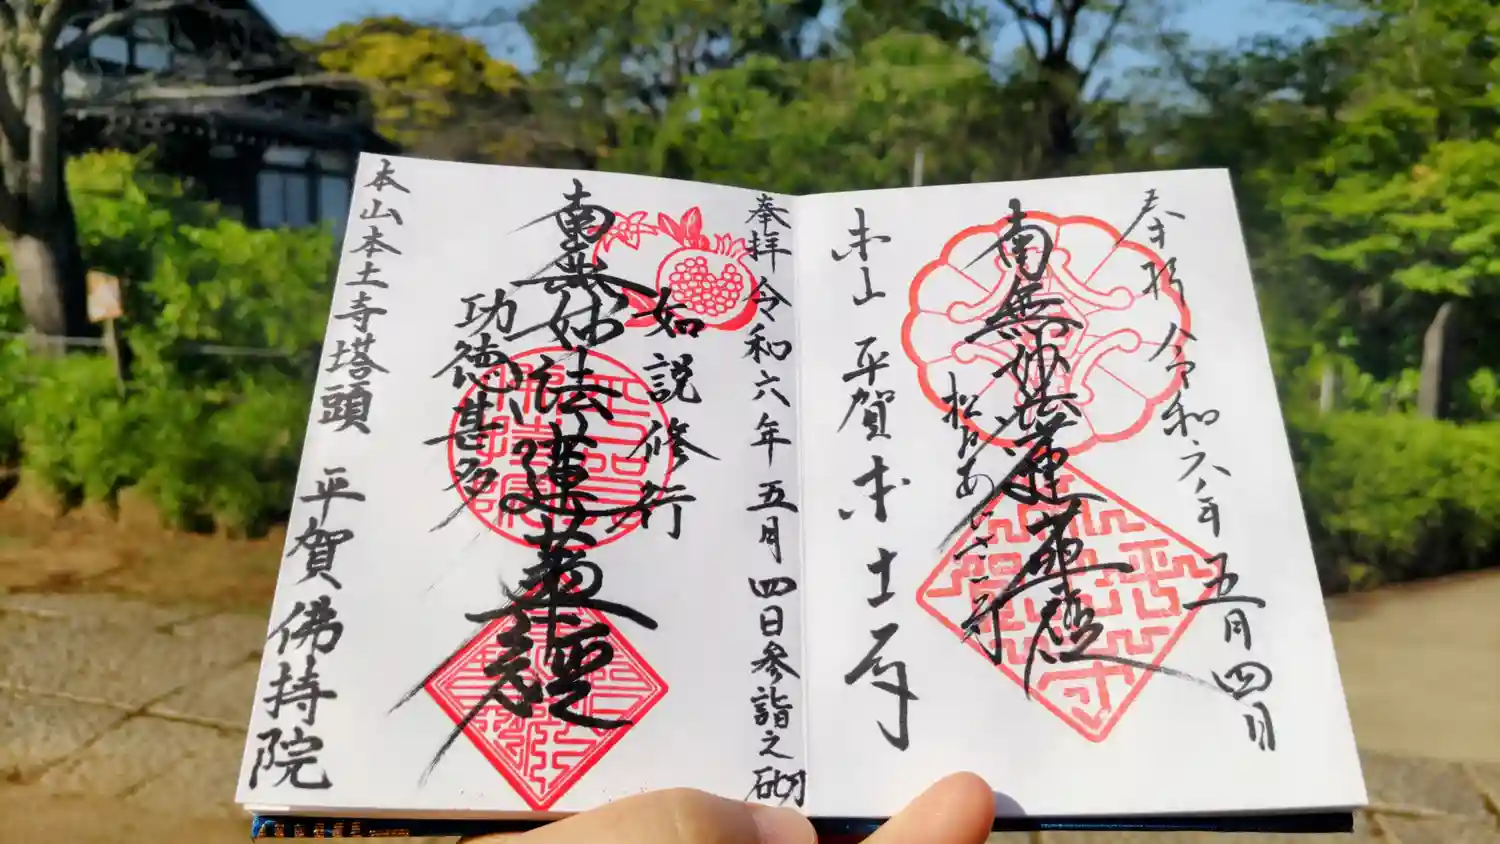 奉拝 令和六年五月四日
南無妙法蓮華經
本山 平賀 本土寺
奉拝 令和六年 五月四日参詣之砌
如説修行
南無妙法蓮華經
功徳甚多
本山本土寺塔頭 平賀佛持院